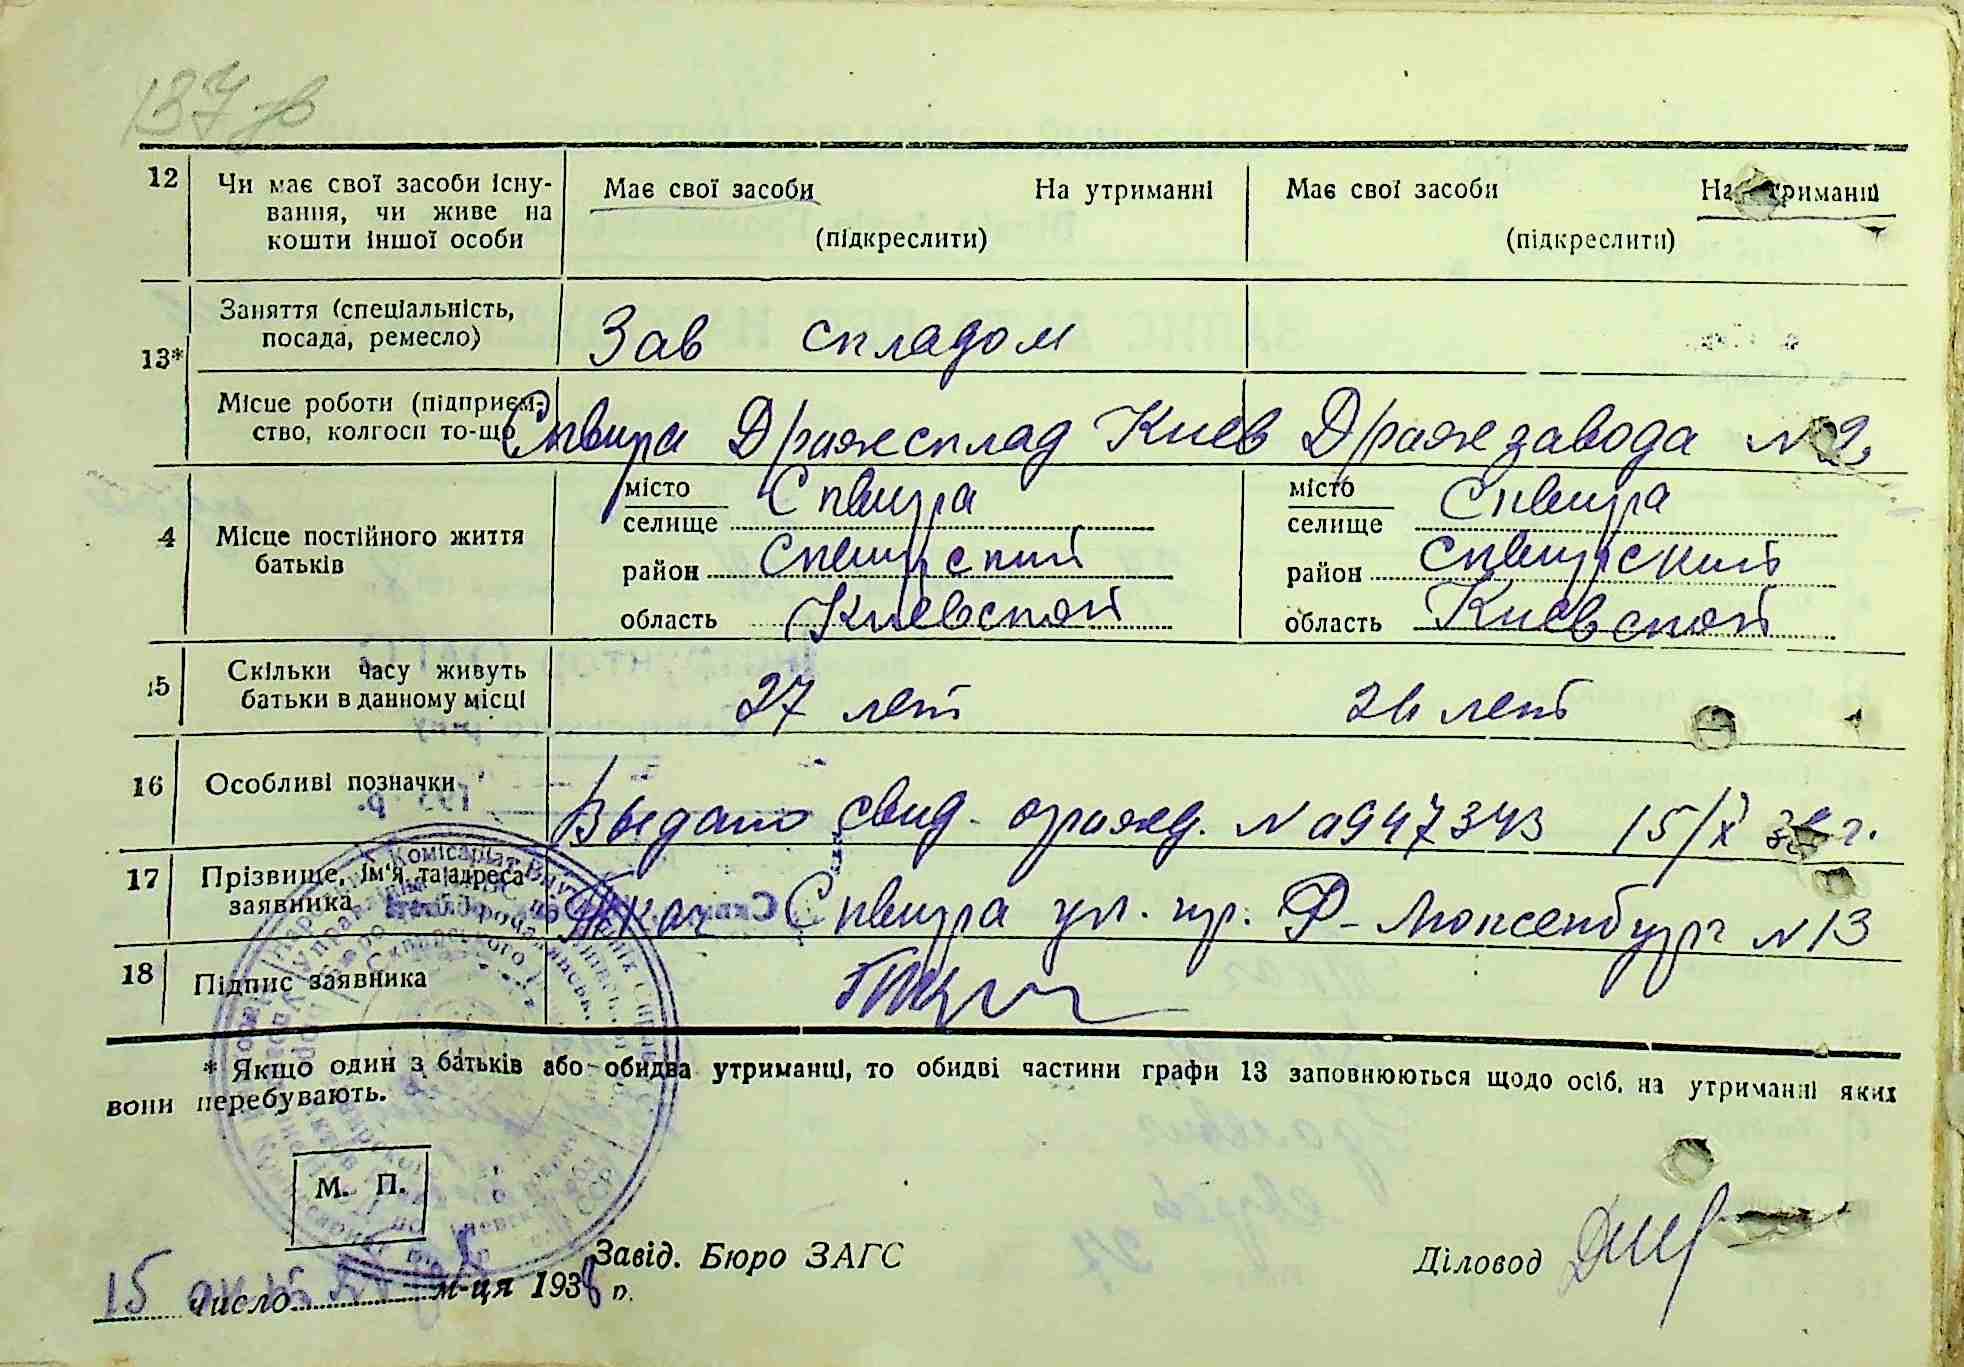 137
12 Чи має свої засоби існу- Має свої засоби На утриманні Має свої засоби На утриманні
вання, чи живе на
кошти іншої особи (підкреслити) (підкреслити)
13* Заняття (спеціальність,
посада, ремесло) Зав складом
Місце роботи (підприєм-
ство, колгосп то-що Сквира Дражсклад Киев Дражзавода №2
4 Місце постійного життя
батьків
місто Сквира місто Сквира
селище селище
район Сквирский район Сквирский
область Киевской область Киевской
15 Скільки часу живуть
батьки в данному місці 27 лет лет
16 Особливі позначки Выдано свид. о рожд. № 947343 15/X г.
17 Прізвище, ім'я та адреса
заявника Ткач Сквира ул. Люксенбург №13
18 Підпис заявника
* Якщо один з батьків або обидва утриманці, то обидві частини графи 13 заповнюються щодо осіб, на утриманні яких
вони перебувають.
М. П.
Завід. Бюро ЗАГС Діловод
15 число м-ця 1938 р.